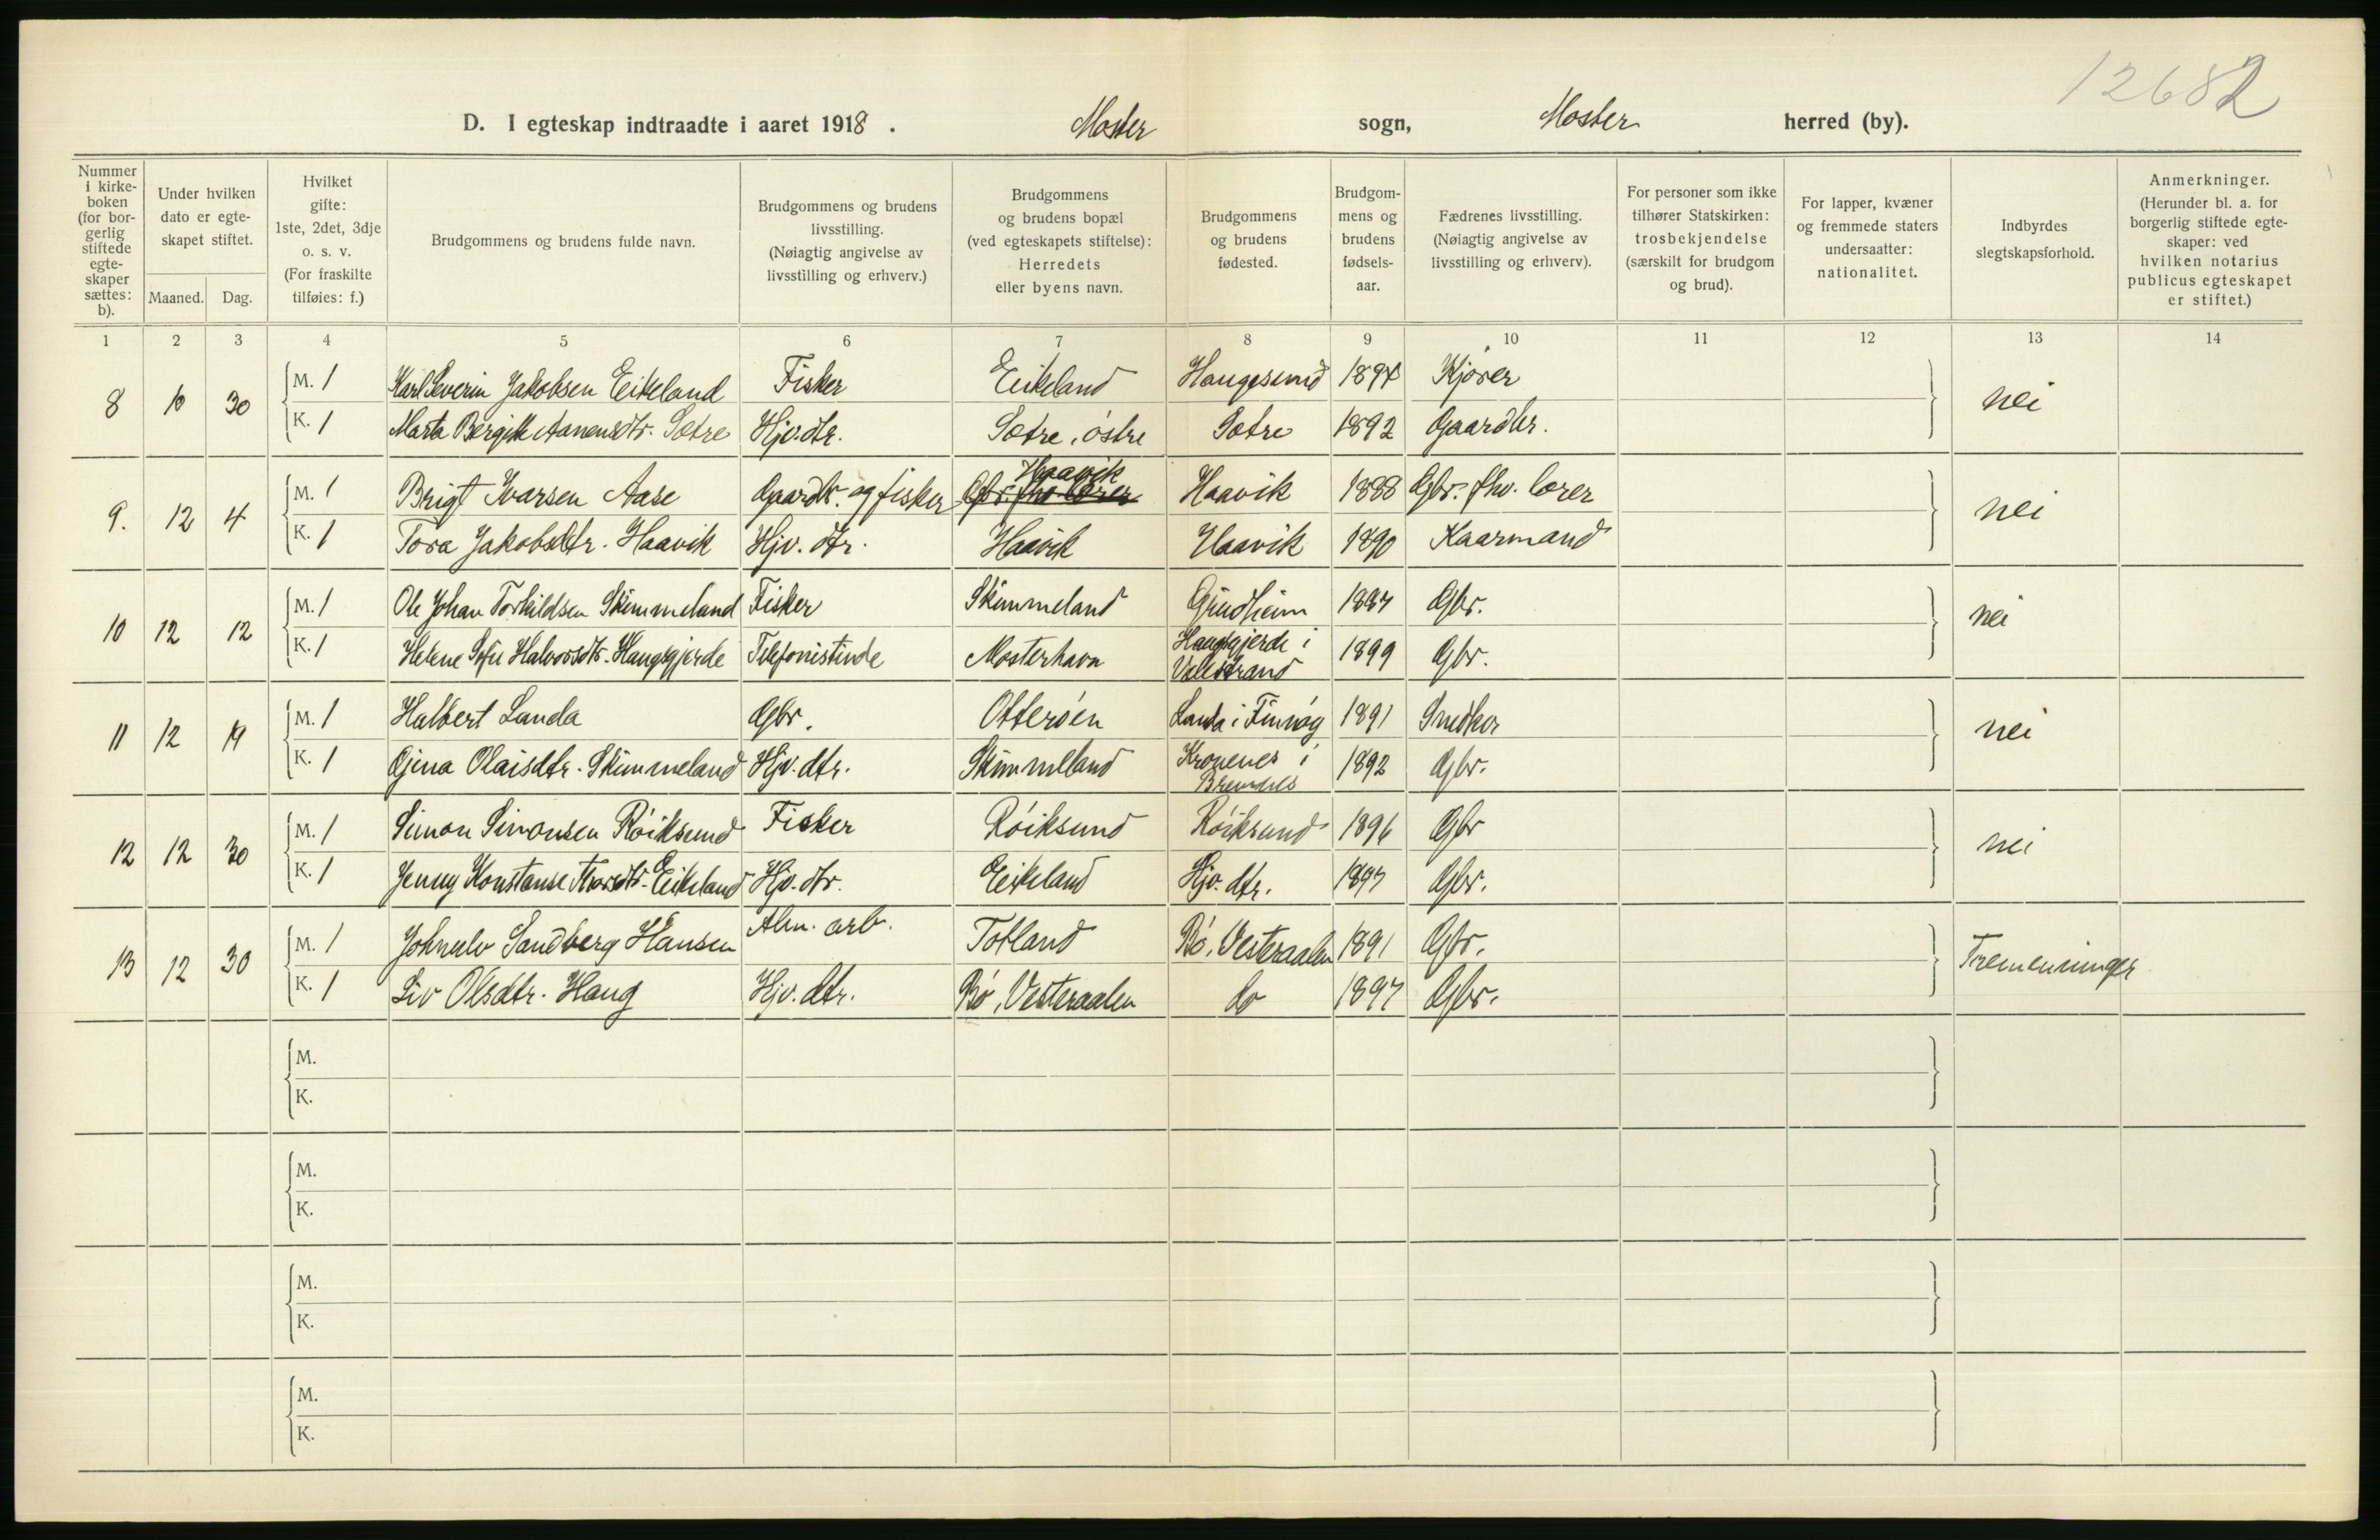 12682
D. I egteskap indtraadte i aaret 1918. Moster sogn, Moster herred (by).
Nummer i kirkeboken (for borgerlig stiftede egteskaper sættes: b).
Under hvilken dato er egteskapet stiftet.
Maaned. Dag.
Hvilket gifte: 1ste, 2det, 3dje o. s. v. (For fraskilte tilføies: f.)
Brudgommens og brudens fulde navn.
Brudgommens og brudens livsstilling. (Nøiagtig angivelse av livsstilling og erhverv.)
Brudgommens og brudens bopæl (ved egteskapets stiftelse): Herredets eller byens navn.
Brudgommens og brudens fødested.
Brudgommens og brudens fødselsaar.
Fædrenes livsstilling. (Nøiagtig angivelse av livsstilling og erhverv).
For personer som ikke tilhører Statskirken: trosbekjendelse (særskilt for brudgom og brud).
For lapper, kvæner og fremmede staters undersaatter: nationalitet.
Indbyrdes slegtskapsforhold.
Anmerkninger. (Herunder bl. a. for borgerlig stiftede egteskaper: ved hvilken notarius publicus egteskapet er stiftet.)
1 2 3 4 5 6 7 8 9 10 11 12 13 14
8 10 30 M. 1 Karl Severin Jakobsen Eikeland Fisker Eikeland Haugesund 1894 Kjører nei
K. 1 Marta Bergitte Aanensdtr. Sætre Hjv. dtr. Sætre, østre Sætre 1892 Gaardbr.
9. 12 4 M. 1 Brigt Ivarsen Aase Gaardbr. og fisker Gbr. fhv. lærer Haavik Haavik 1888 Gbr. fhv. lærer nei
K. 1 Tora Jakobsdtr. Haavik Hjv. dtr. Haavik Haavik 1890 Kaarmand
10 12 12 M. 1 Ole Johan Torkildsen Skimmeland Fisker Skimmeland Grindheim 1887 Gbr. nei
K. 1 Helene Sofie Halvorsdtr. Haugsgjerde Telefonistinde Mosterhavn Haugsgjerde i Valestrand 1899 Gbr.
11 12 19 M. 1 Halbert Landa Gbr. Otterøen Landa i Finnøy 1891 Snedker nei
K. 1 Gjina Olaisdtr. Skimmeland Hjv. dtr. Skimmeland Kronenes i Bremnes 1892 Gbr.
12 12 30 M. 1 Simon Simonsen Røiksund Fisker Røiksund Røiksund 1896 Gbr nei
K. 1 Jenny Konstanse Eikeland Hjv. dtr. Eikeland Hjv. dtr. 1897 Gbr.
13 12 30 M. 1 Sandberg Hansen Alm. arb. Totland Bø, Vesteraalen 1891 Gbr. Tremenninger
K. 1 Liv Olsdtr. Haug Hjv. dtr. Bø, Vesteraalen do 1897 Gbr.
M.
K.
M.
K.
M.
K.
M.
K.